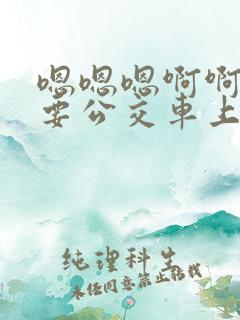 嗯嗯嗯啊啊
要公交車上
纯理科生
未经同意禁止转载